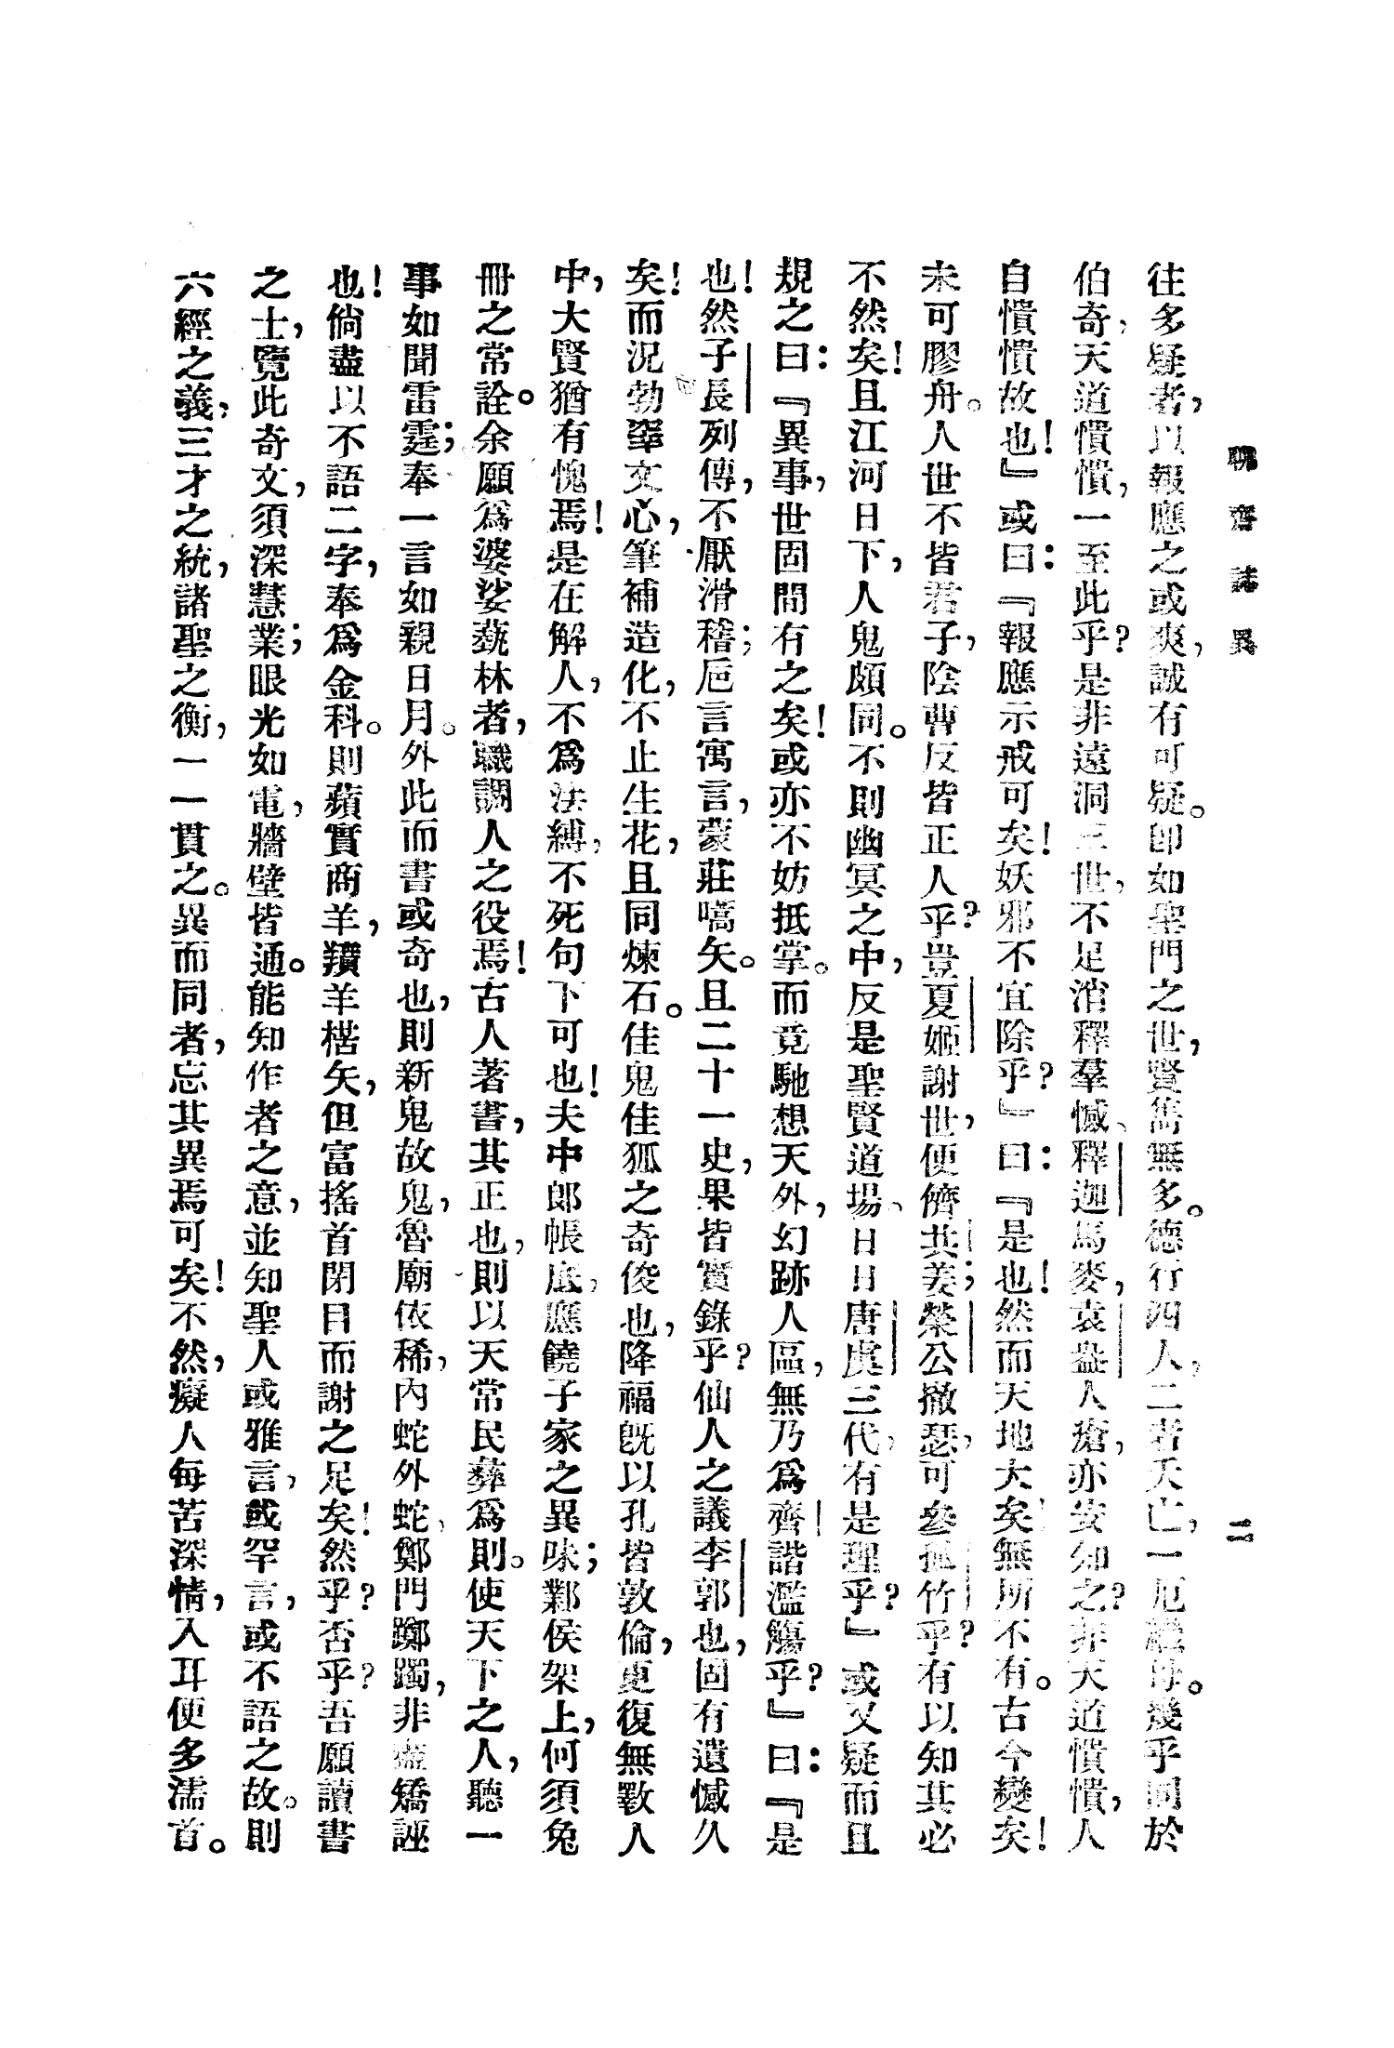 聊齋誌異
二
往多疑者,以報應之或爽,誠有可疑。卽如聖門之世,賢雋無多。德行四人,二者夭亡,一厄繼母。幾乎同於
伯奇,天道憒憒,一至此乎?是非遠洞三世,不足消釋羣憾、釋迦馬麥,袁盎人瘡,亦安知之?非天道憒憒,人
自憒憒故也!』或曰:『報應示戒可矣!妖邪不宜除乎?』曰:『是也!然而天地大矣!無所不有。古今變矣!
未可膠舟。人世不皆君子,陰曹反皆正人乎?豈夏姬謝世,便儕共姜;榮公撤瑟,可參孤竹乎?有以知其必
不然矣!且江河日下,人鬼頗同。不則幽冥之中,反是聖賢道場、日日唐虞三代,有是理乎?』或又疑而且
規之曰:『異事,世固間有之矣!或亦不妨抵掌。而竟馳想天外,幻跡人區,無乃爲齊諧濫觴乎?』曰:『是
也!然子長列傳,不厭滑稽;巵言寓言,蒙莊嚆矢。且二十一史,果皆實錄乎?仙人之議李郭也,固有遺憾久
矣!而況勃窣文心,筆補造化,不止生花,且同煉石。佳鬼佳狐之奇俊也,降福旣以孔皆敦倫,更復無斁人
中,大賢猶有愧焉!是在解人,不爲法縛,不死句下可也!夫中郎帳底,應饒子家之異味;鄴侯架上,何須兔
冊之常詮。余願爲婆娑蓺林者,職調人之役焉!古人著書,其正也,則以天常民彝爲則。使天下之人,聽一
事如聞雷霆;奉一言如親日月。外此而書或奇也,則新鬼故鬼,魯廟依稀,內蛇外蛇,鄭門躑躅,非盡矯誣
也!倘盡以不語二字,奉爲金科。則蘋實商羊,羵羊楛矢,但富搖首閉目而謝之足矣!然乎?否乎?吾願讀書
之士,覽此奇文,須深慧業;眼光如電,牆壁皆通。能知作者之意,並知聖人或雅言,或罕言,或不語之故。則
六經之義,三才之統,諸聖之衡,一一貫之。異而同者,忘其異焉可矣!不然,癡人每苦深情,入耳便多濡首。